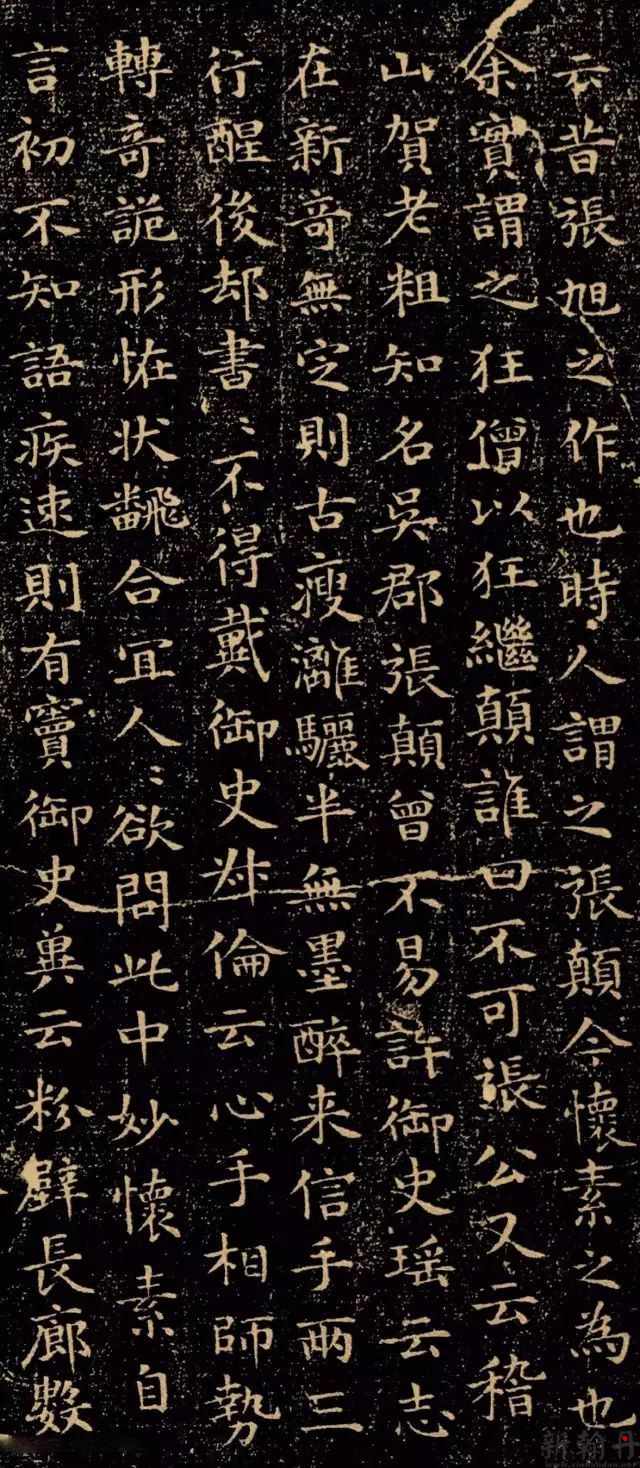 云昔張旭之作也時人謂之張顛今懷素之為也
余實謂之狂僧以狂繼顛誰曰不可張公又云稽
山賀老粗知名吳郡張顛曾不易許御史瑶云志
在新奇無定則古瘦漓驪半無墨醉来信手两三
行醒後却書書不得戴御史叔倫云心手相師勢
轉奇詭形恠状飜合宜人人欲問此中妙懷素自
言初不知語疾速則有竇御史兾云粉壁長廊數
新翰丹